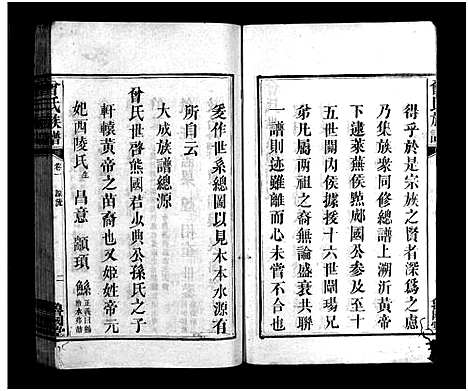 曾氏族譜
得乎於是宗族之賢者深為之慮
乃集族衆同修總譜上溯沂黃帝
下逮萊蕪侯㷍郕國公参及十
五世關内侯據十六世闡瑒兄
弟凡屬兩祖之裔無論盛衰共聯
一譜則迹雖離而心未嘗不合也
爰作世系總圖以見木本水源有
所自云
大成族譜總源
曾氏世啓熊國君少典公孫氏之子
軒轅黃帝之苗裔也又姬姓黃帝元
妃西陵氏生昌意 顓頊 鯀
曾氏族譜
卷一
源流
一
魯國堂